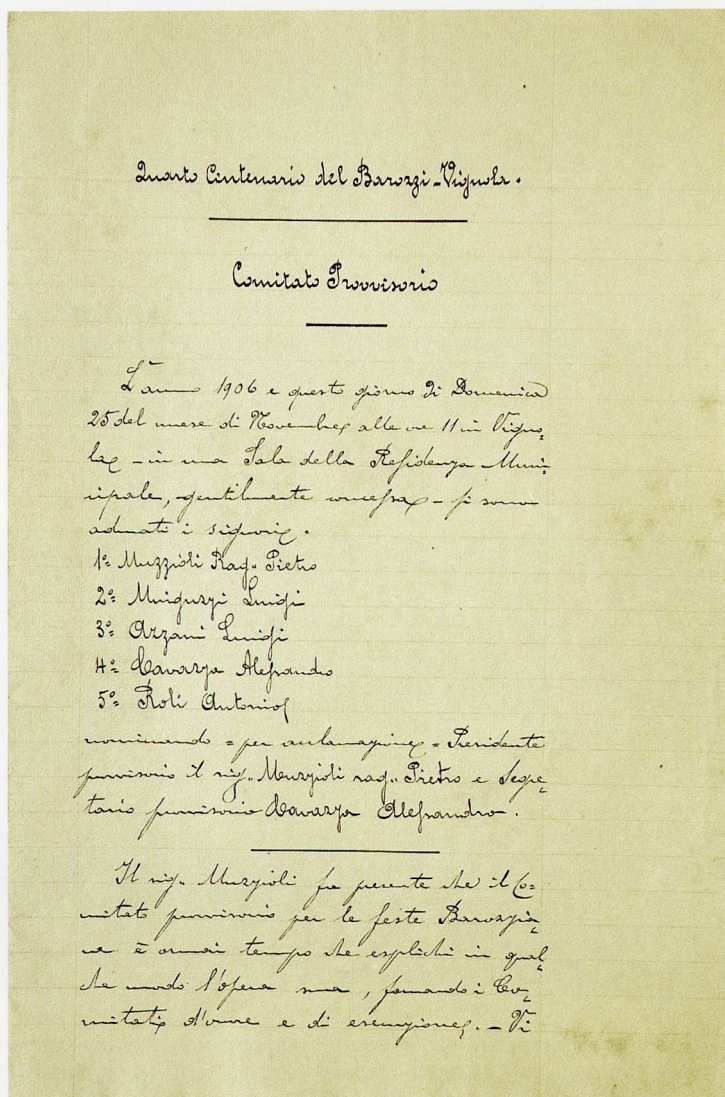 Quarto Centenario del Barozzi-Vignola.
Comitato Provvisorio
L'anno 1906 e questo giorno di Domenica
25 del mese di Novembre alle ore 11 in Vigno-
la - in una Sala della Residenza Muni-
cipale, gentilmente concessa - si sono
adunati i signori.
1º Muzzioli Rag. Pietro
2º Minguzzi Luigi
3º Azzani Luigi
4º Cavazza Alessandro
5º Roli Antonio
nominando = per acclamazione = Presidente
provvisorio il sig. Muzzioli rag. Pietro e Segre-
tario provvisorio Cavazza Alessandro.
Il sig. Muzzioli fa presente che il Co-
mitato provvisorio per le feste Barozzia-
ne è ormai tempo che esplichi in qual-
che modo l'opera sua, formando i Co-
mitati d'onore e di esecuzione. - Vi